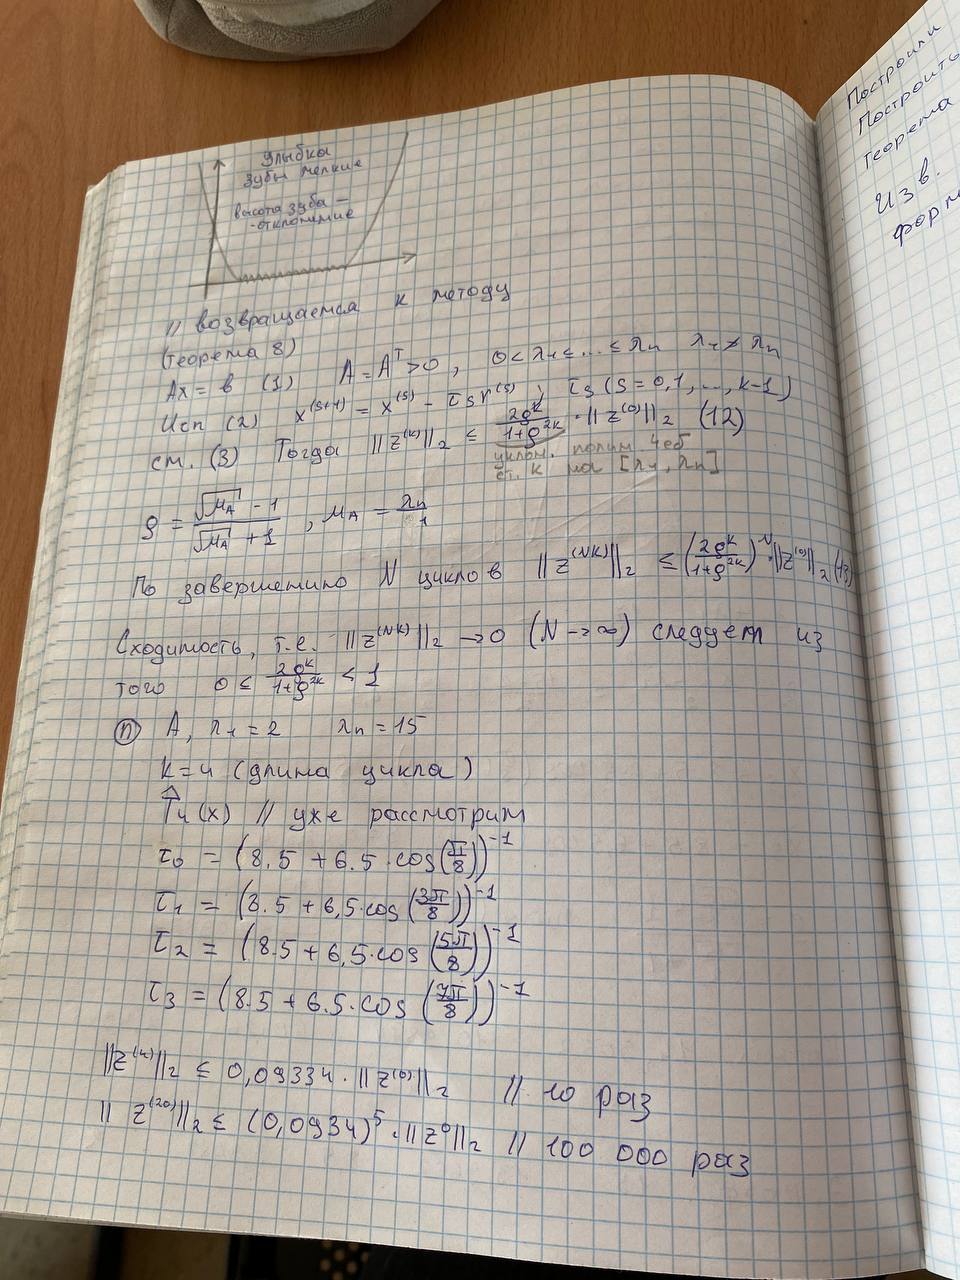 Улыбка
зубы мелкие
высота зуба —
- отклонение
// возвращаемся к методу
(теорема 8)
Ax = b (1) A = Aᵀ > 0, 0 < λ₁ ≤ ... ≤ λn λ₁ ≠ λn
Исп (2) x^(s+1) = x^(s) - τs r^(s), τs (s = 0,1,..., k-1)
см. (3) Тогда ||z^(k)||₂ ≤ 2ρ^k/(1+ρ^2k) · ||z^(0)||₂ (12)
уклон. полин. Чеб
ст. k на [λ₁, λn]
ρ = (√μA - 1)/(√μA + 1), μA = λn/λ₁
По завершению N циклов ||z^(Nk)||₂ ≤ (2ρ^k/(1+ρ^2k))^N · ||z^(0)||₂ (13)
Сходимость, т.е. ||z^(Nk)||₂ → 0 (N → ∞) следует из
того 0 ≤ 2ρ^k/(1+ρ^2k) < 1
(п) A, λ₁ = 2 λn = 15
k = 4 (длина цикла)
T̂₄(x) // уже рассмотрим
τ₀ = (8.5 + 6.5 · cos(π/8))⁻¹
τ₁ = (8.5 + 6,5 · cos(3π/8))⁻¹
τ₂ = (8.5 + 6,5 · cos(5π/8))⁻¹
τ₃ = (8.5 + 6.5 · cos(7π/8))⁻¹
||z^(4)||₂ ≤ 0,09334 · ||z^(0)||₂ // 10 раз
||z^(20)||₂ ≤ (0,0934)⁵ · ||z⁰||₂ // 100 000 раз
Построили
Построить
Теорема
Изв.